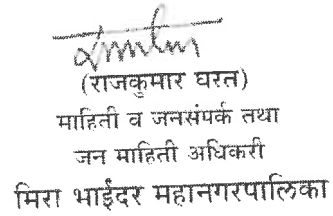 (राजकुमार घरत)
माहिती व जनसंपर्क तथा
जन माहिती अधिकरी
मिरा भाईंदर महानगरपालिका